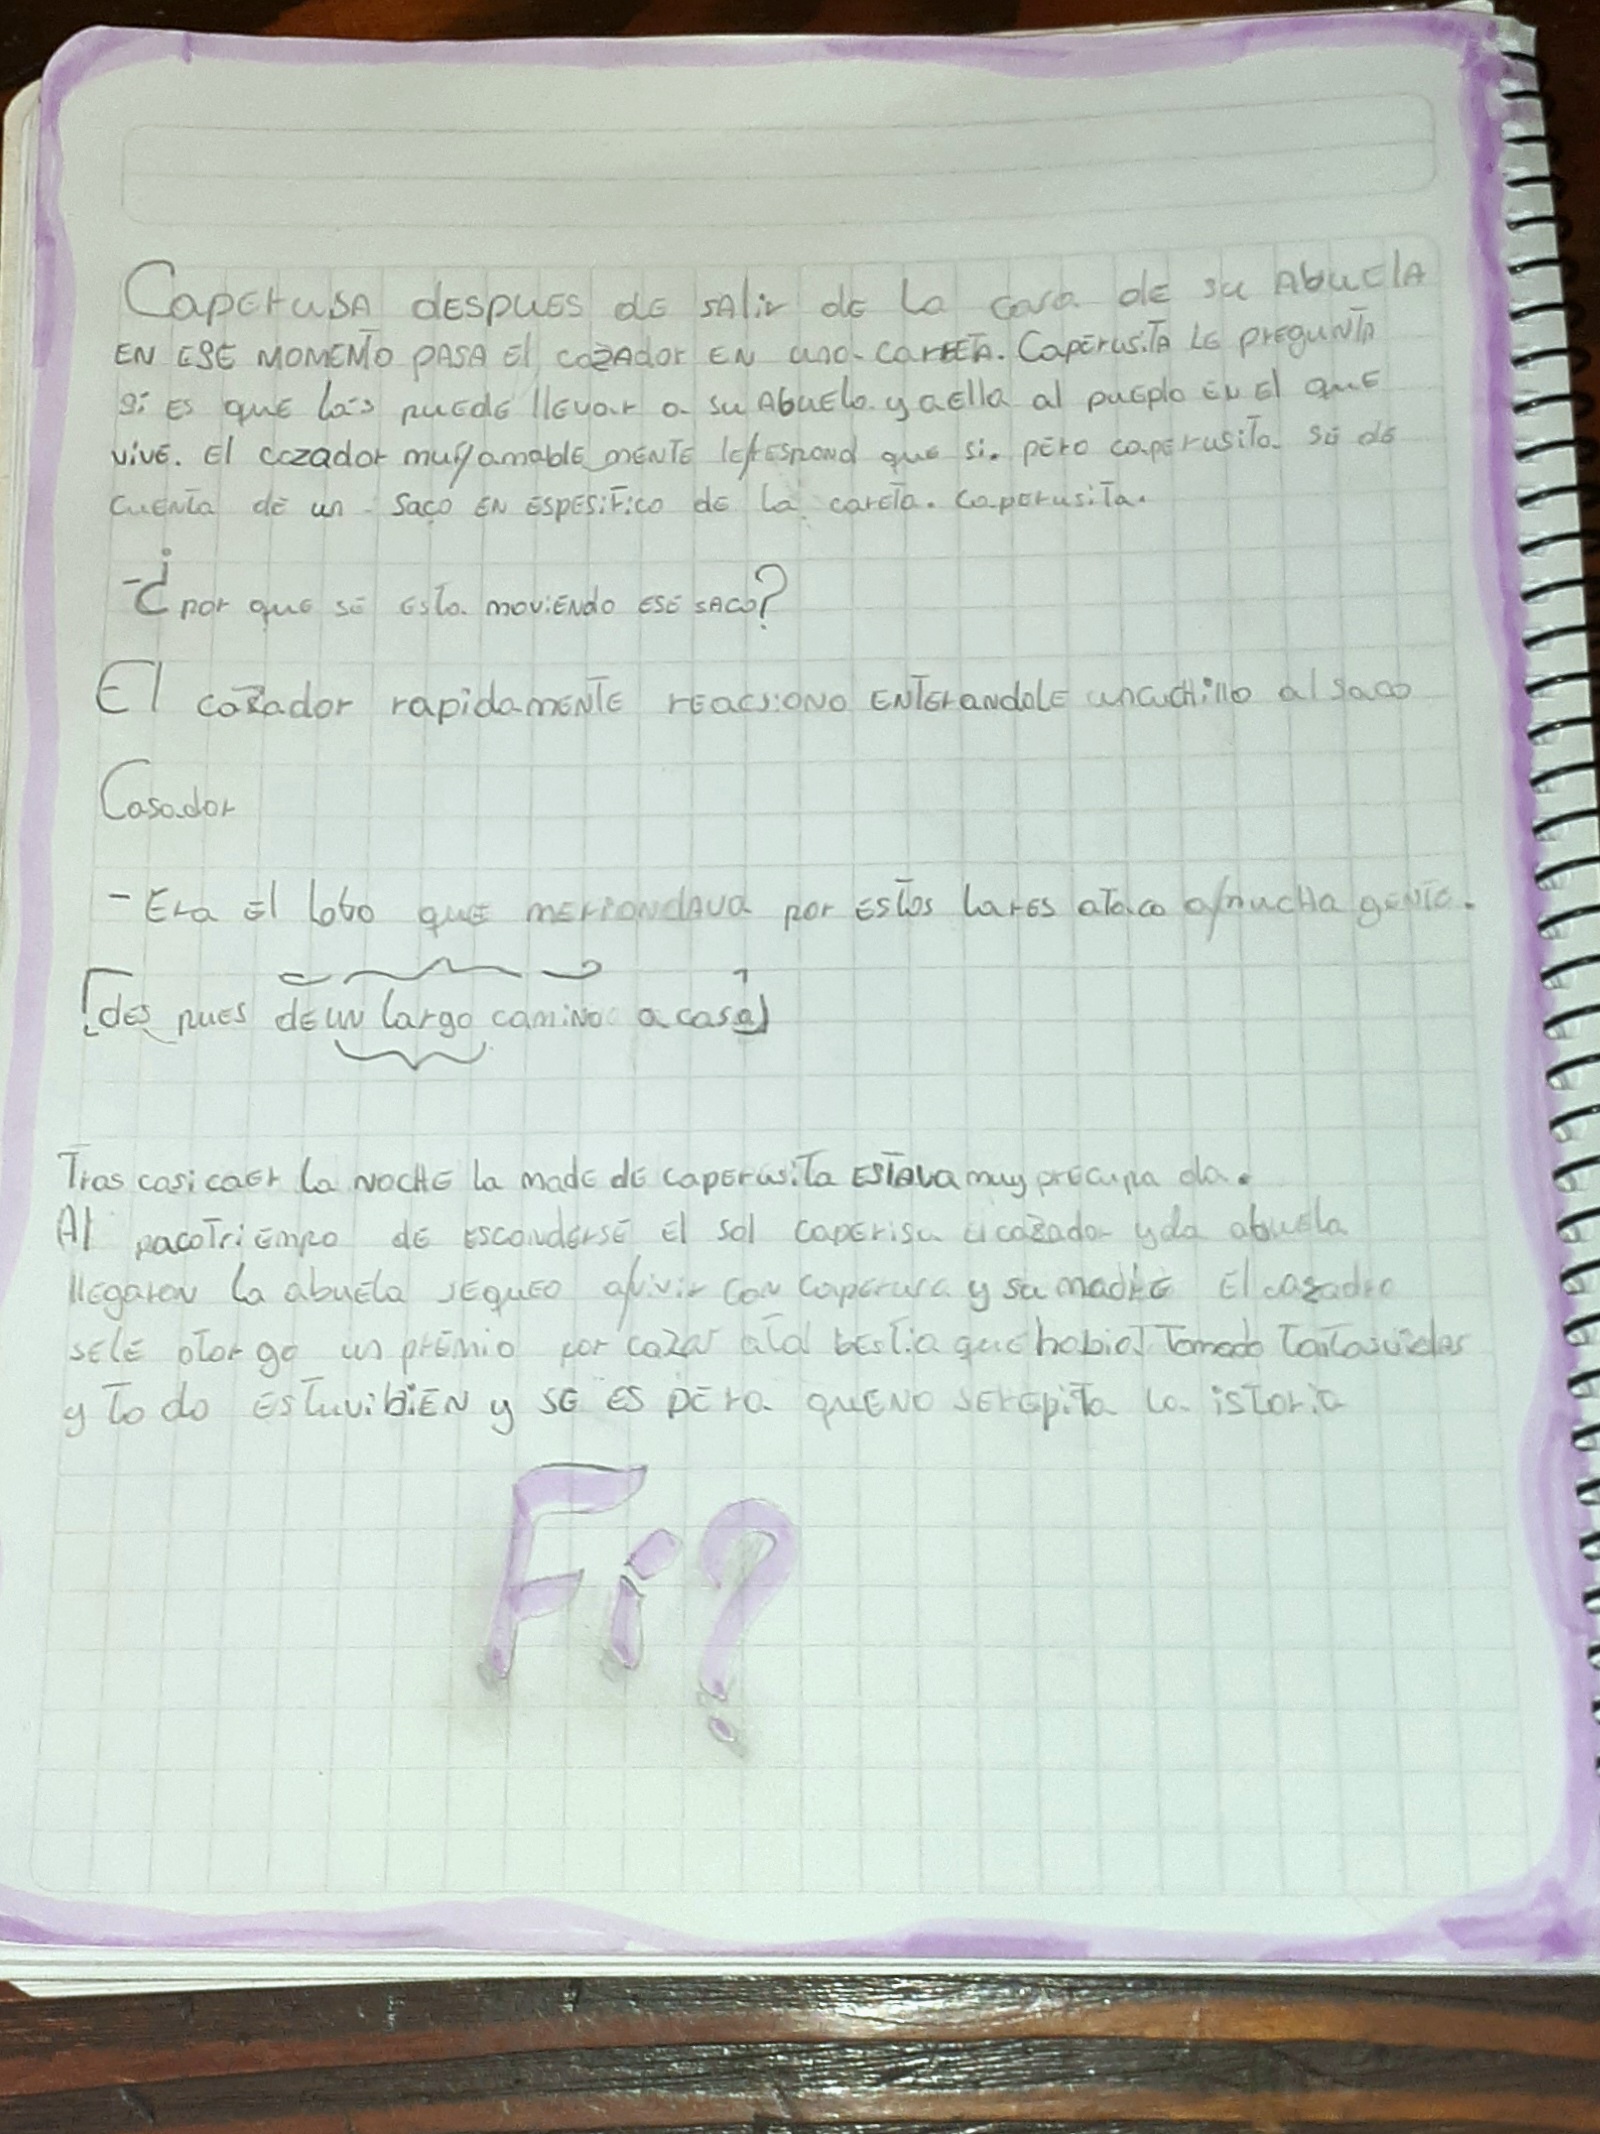 Caperusa despues de salir de la casa de su Abuela
en ese momento pasa el cazador en una carreta. Caperusita le pregunta
si es que las puede llevar a su Abuela y aella al pueplo en el que
vive. El cazador muy amable mente le respond que si. pero caperusita se de
cuenta de un saco en espesifico de la careta. caperusita.
-¿por que se esta moviendo ese saco?
El cazador rapidamente reacsiono enterandole uncuchillo al saco
Casador
- Era el lobo que merrondava por estos lares ataco a mucha gente.
[des pues deun largo camino a casa]
Tras casi caer la noche la made de caperusita estava muy precupa da.
Al pacotriempo de esconderse el sol caperisa el cazador y la abuela
llegaron la abuela sequeo a vivir con caperusa y su madre El cazadro
sele otor go un premio por cazar atal bestia que habia tomado tantasvidas
y to do estuvibien y se es pera queno serepita la istoria
Fi?